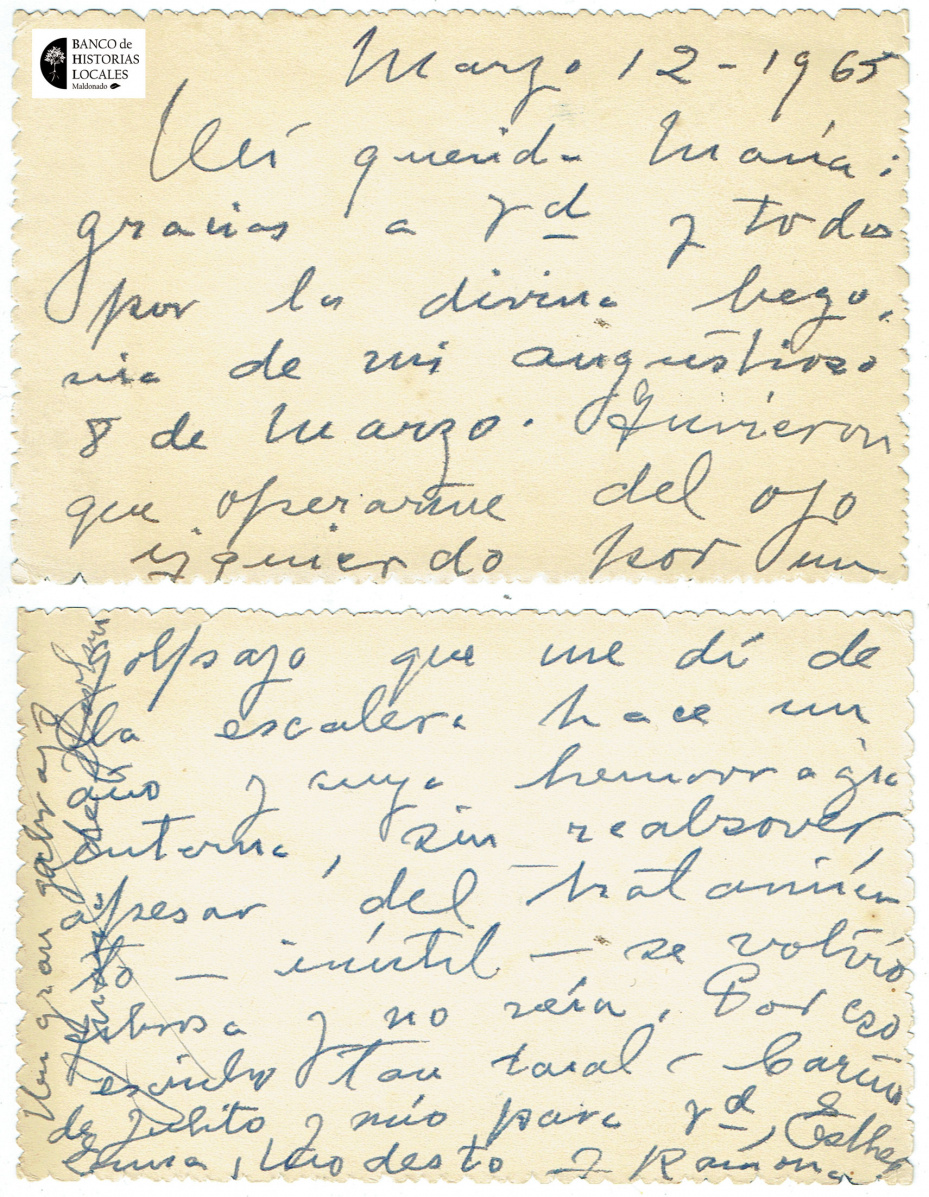 BANCO de
HISTORIAS
LOCALES
Maldonado
Marzo 12-1965
Mi querida María:
gracias a Vd y todos
por la divina bego,
nia de mi angustioso
8 de Marzo. Tuvieron
que operarme del ojo
izquierdo por un
golpazo que me dí de
la escalera hace un
año y cuya hemorragia
interna, sin reabsover,
apesar del tratamien
to - inútil - se volvió
fibrosa y no veía. Por eso
escribo tan mal - Cariño
de Julito y mío para Vd, Esther
Laura, Modesto y Ramona
Un gran abrazo
de